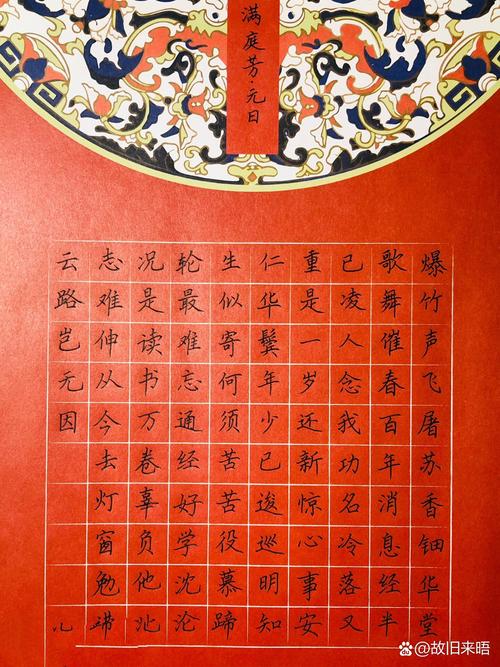 满庭芳·元日
爆竹声飞屠苏香钿华堂
歌舞催春百年消息经半
已凌人念我功名冷落又
重是一岁还新惊心事安
仁华鬓年少已逡巡明知
生似寄何须苦苦役慕蹄
轮最难忘通经好学沈沦
况是读书万卷辜负他
志难伸从今去灯窗勉
云路岂无因
@故旧来晤